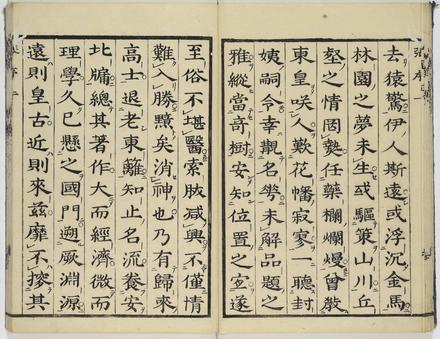 去猿驚伊人斯遠或浮沉金馬
林園之夢未生或驅策山川丘
壑之情罔藝任藥欄爛熳曾嚴
東皇咲人歎花幡寂寥一聽封
姨嗣令幸覯名葩未解品題之
雅縱當竒樹安知位置之宜遂
至俗不堪醫索肱减興不僅情
難入勝黯矣消神也乃有歸來
高士退老東籬知止名流養安
北牖總其著作大而經濟微而
理學久已懸之國門遡厥淵源
遠則皇古近則來茲靡不摎其